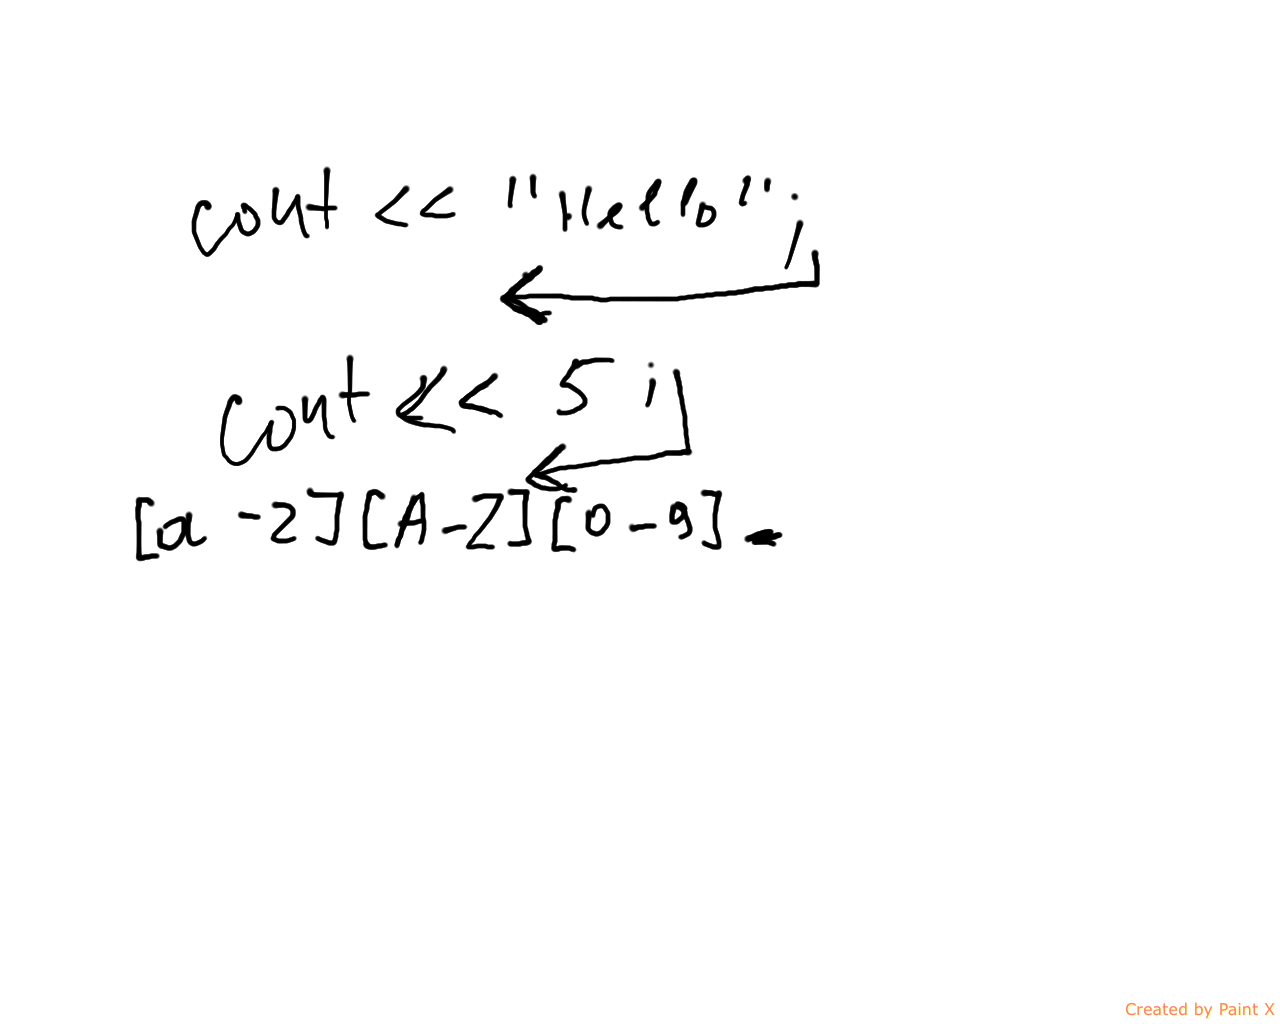 cout << "Hello";
cout << 5;
[a-z][A-Z][0-9]_
Created by Paint X